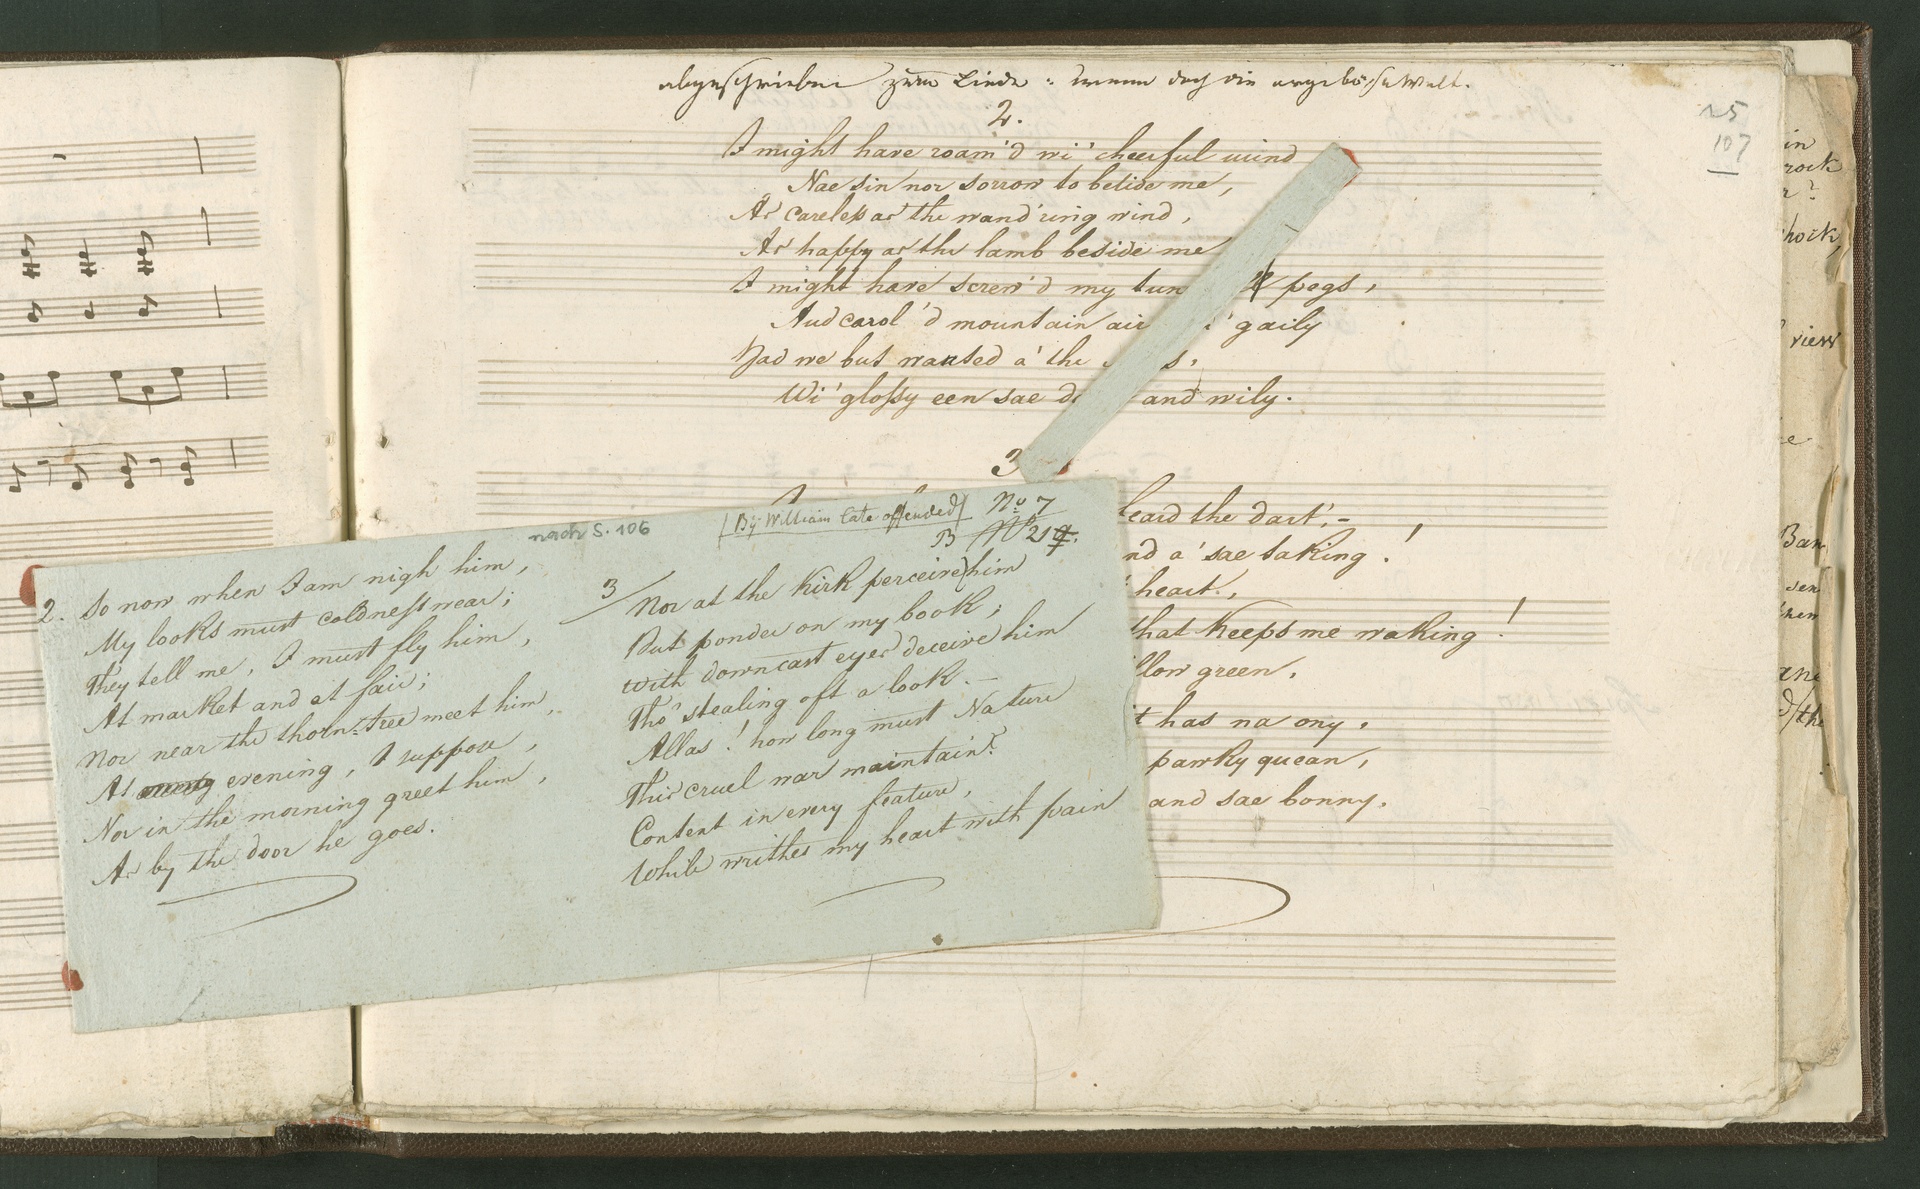 abgeschrieben zum Liede : wenn doch die argebösse Welt.
25
107
2.
I might have roam'd wi' cheerful mind
Nae sin nor sorrow to betide me,
As careless as the wand'ring wind,
As happy as the lamb beside me
I might have screw'd my tun pegs,
And carol'd mountain air gaily
Had we but wanted a' the s,
Wi' glossy een sae d and wily.
3
heard the dart,-
nd a' sae taking!
heart,
that keeps me waking!
llow green,
t has na ony,
pawky quean,
and sae bonny.
nach S. 106
(By William late offended) No 7
B No 21
2. So now when I am nigh him,
My looks must coldness wear;
They tell me, I must fly him,
At market and at fair;
Nor near the thorn-tree meet him,
At evening, I suppose,
Nor in the morning greet him,
As by the door he goes.
3
Nor at the Kirk perceive him
But ponder on my book;
With downcast eyes deceive him
Tho' stealing oft a look.-
Allas! how long must Nature
This cruel war maintain?
Content in every feature,
While writhes my heart with pain
in
rock
r?
hock,
view
Ban
sen
then
and
d/the